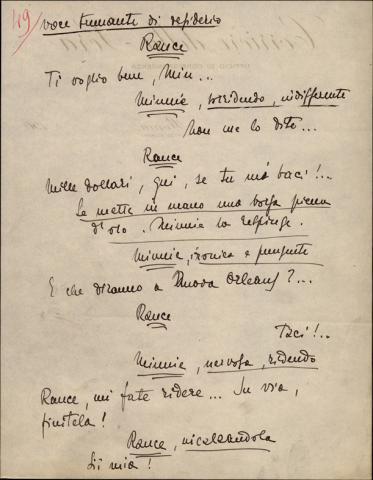 49
voce tremante di desiderio
Rance
Ti voglio bene, Min...
Minnie, sorridendo, indifferente
Non me lo dite...
Rance
Mille dollari, qui, se tu mi baci!...
Le mette in mano una borsa piena
d'oro. Minnie la respinge.
Minnie, ironica e pungente
E che diranno a Nuova Orleans?...
Rance
Taci!...
Minnie, nervosa, ridendo
Rance, mi fate ridere... Su via,
finitela!
Rance, incalzandola
Sii mia!